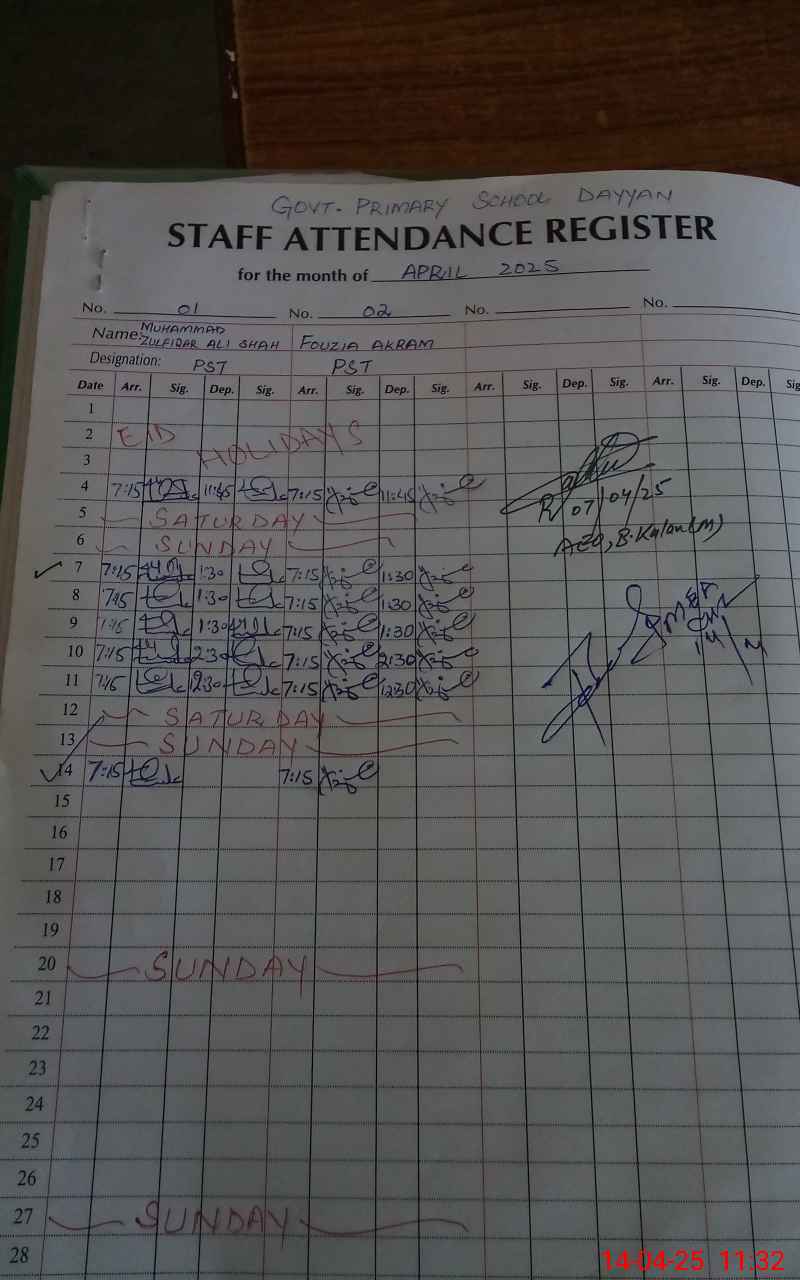 GOVT- PRIMARY SCHOOL DAYYAN
STAFF ATTENDANCE REGISTER
for the month of APRIL 2025
No. 01 No. 02 No. No.
Name: MUHAMMAD ZULFIQAR ALI SHAH FOUZIA AKRAM
Designation: PST PST
Date Arr. Sig. Dep. Sig. Arr. Sig. Dep. Sig. Arr. Sig. Dep. Sig. Arr. Sig. Dep. Sig
1
2 EID HOLIDAYS
3
4 7:15 11:45 7:15 11:45
5 SATURDAY
6 SUNDAY
7 7:15 1:30 7:15 1:30
8 7:15 1:30 7:15 1:30
9 1:30 7:15 1:30
10 7:15 2:30 7:15 2:30
11 7:15 2:30 7:15
12 SATURDAY
13 SUNDAY
14 7:15 7:15
15
16
17
18
19
20 SUNDAY
21
22
23
24
25
26
27 SUNDAY
28
07/04/25
AEO, B.Kalan (M)
14-04-25 11:32